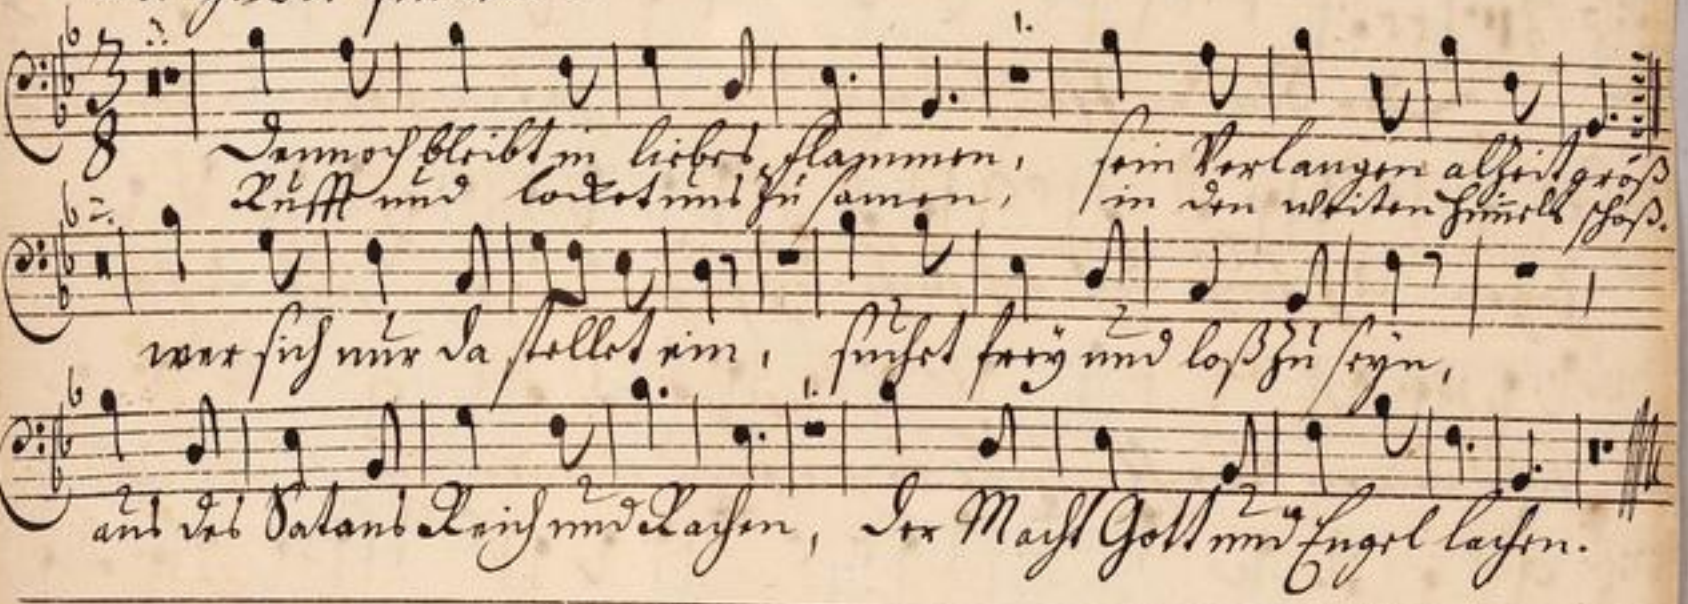 Dennoch bleibt in liebes flammen, sein Verlangen alzeit groß
Rufft und locket uns zusamen, in den weiten Himels schoß.
wer sich nur da stellet ein, suchet frey und loß zu seyn,
aus des Satans Reich und Rachen, der Macht Gott und Engel lachen.